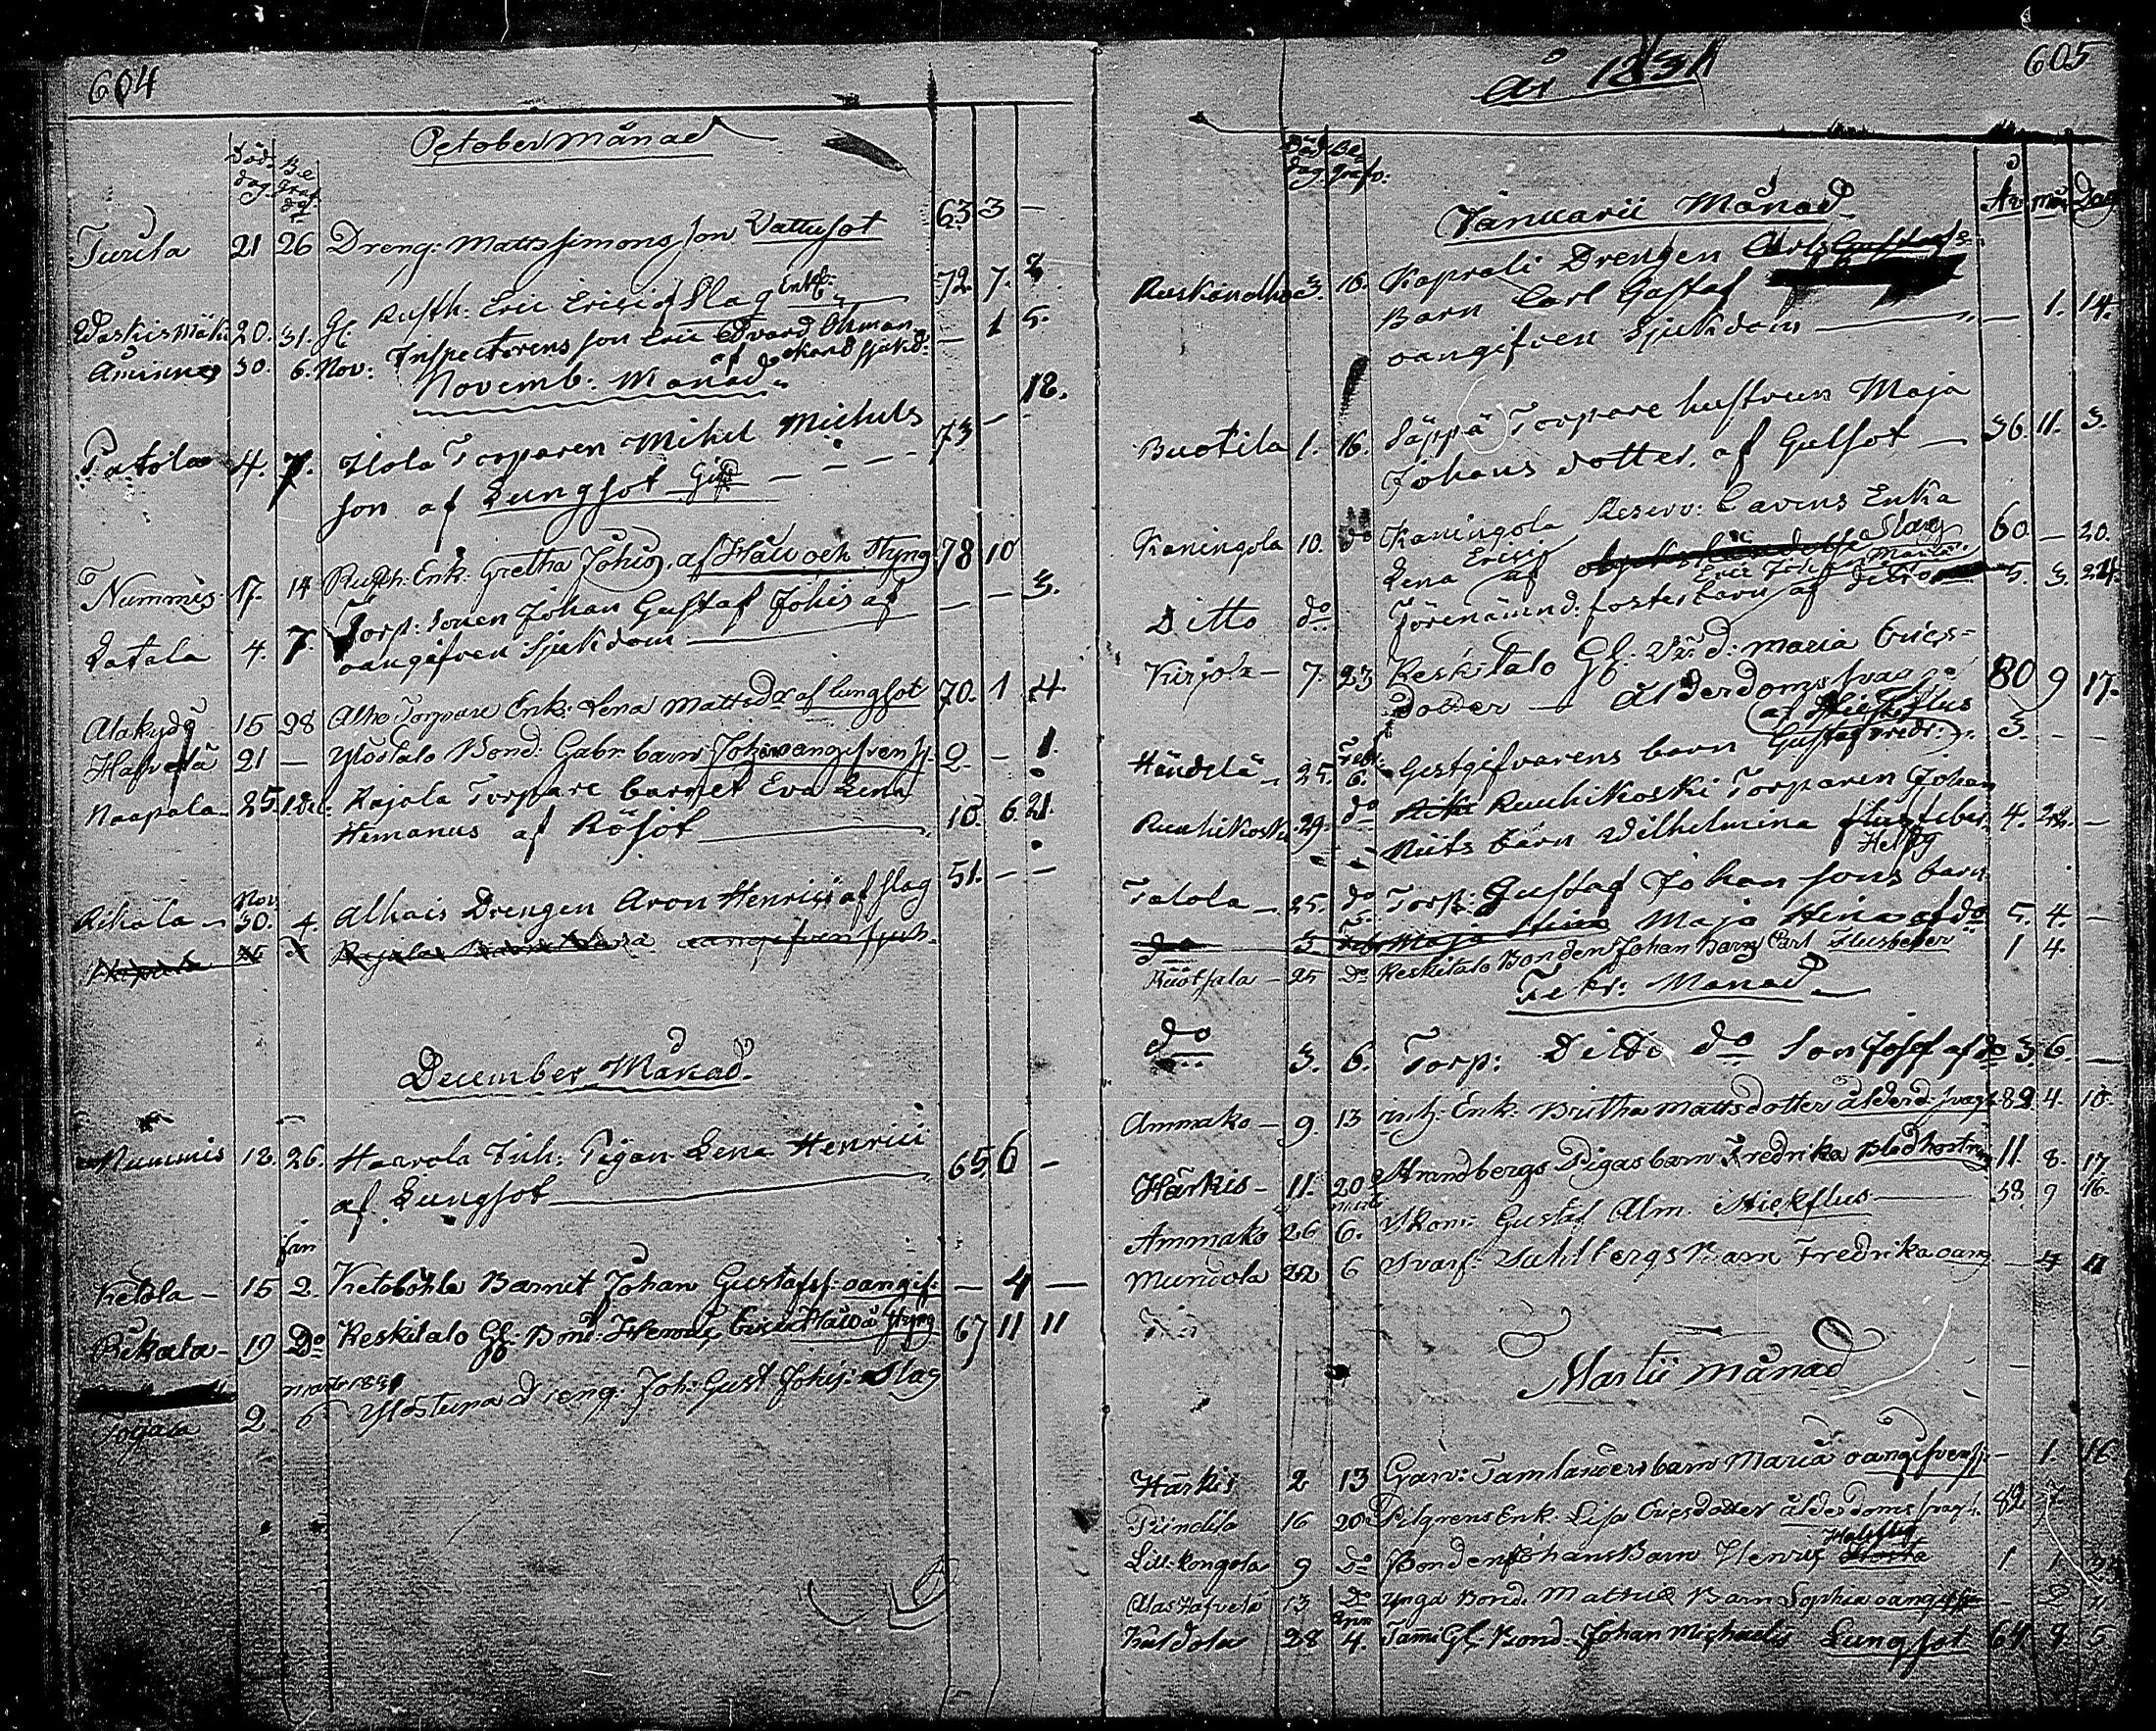 604
October Månad
Död dag Be graf dag
Turila 21 26 Dreng: Matts Simons son Vattusot 63 3 —
Waskismäki 20. 31. Gl. Rusth: Eric Erici af Slag Enkl: 72. 7. 3
Åminne 30. 6. Nov: Inspectorens son Eric Edvard Öhman — 1 5.
af okänd sjukd:
Novemb: Månad
12.
Patola 4. 7. Ilola Torparen Mihel Michels 73 —
son af Lungsot Gift — — —
Nummis 17. 14 Rusth: Enk: Gretha Johis. af Håll och Styng 78 10
Latala 4. 7. Torp: Sonen Johan Gustaf Johis af — — 3.
oangifven Sjukdom
Alakydö 15 28 Alho Torpare Enk: Lena Mattsdr af lungsot 70. 1 4.
Hafvelä 21 — Ylöstalo Bond: Gabr. barn Johan oangifven sj. 2. — 1.
Naapala 25. 1 Dec: Rajala Torpare barnet Eva Lena
Hemanus af Rösot 10. 6 21.
Nov
Rikala 30. 4. Alhais Drengen Aron Henrici af slag 51. — —
December Månad.
Nummis 18. 26. Haarola Inh: Pigan Lena Henrici
af Lungsot 65. 6 —
Jan
Ketola — 15 2. Ketoböhle Barnet Johan Gustafs: oangif: — 4 —
Rikala — 19 Do Keskitalo Gl: Bond: Henric Erici Håll o Styng 67 11 11
Marti 1831
2 6 Ylöstuna Dreng: Joh: Gust Johis: Slag
605
År 1831
Död dag Be grafn:
Januarii Månad År mån Dag
3. 16. Kaprali Drengen Carl Gustafs
Barn Carl Gustaf
oangifven Sjukdom — — 1. 14.
Buotila 1. 16. Säppä Torpare hustrun Maja
Johans dotter. af Gulsot — 36. 11. 3.
Kaningola 10. do Kaningola Reserv: Cavens Enka
Lena Ericis af Slag 60 — 20.
Ditto do Förenämnd: fosterbarn af ditto 5. 3. 24.
Kirjola — 7. 23 Keskitalo Gl: Värd: Maria Erics=
dotter — Ålderdomsswag 80 9 17.
af Stickflus
Händelä — 25. Febr: 6. Gestgifvarens barn Gustaf Fredr: 3. — —
Ruuhikoski 29. do Ruuhikoski Torparen Johan
Niits barn Wilhelmina feber 4. 22. —
Helfsg
Talola — 25. do Torp: Gustaf Johan sons barn
Maja Stina af do 5. 4. —
25 Do Keskitalo Bonden Johan Barn Carl Flusfeber 1 4.
Febr: Månad
do 3. 6. Torp: Ditto do Son Josef af do 3 6. —
Ammako — 9. 13 inh: Enk: Britha Mattsdotter ålderd: swag: 82 4. 10.
Härkis — 11. 20 Strandbergs Pigas barn Fredrika Blodhostning 11 8. 17
Marti
Ammako 26 6. Skom: Gustaf Alm. Stickflus — 38. 9 16.
Mundola 22 6 Svarf: Dahlbergs Barn Fredrika oang — 4 11
Martii Månad
Härkis 2 13 Garv: Tamlanders barn Maria oangifven sj: — 1. 16.
Piindilä 16 20 Pilgrens Enk: Lisa Ericsdotter ålderdoms swag: 82 7
Lill-kongola 9 Do Bonden Johans Barn Henric Halsfluss 1 1
Alas Hafvelä 13 Do Ynga Bond: Matthis Barn Sophia oangif — 2
April
Kaldola 28 4. Tami Gl: Bond: Johan Michaelis Lungsot 64 9 5